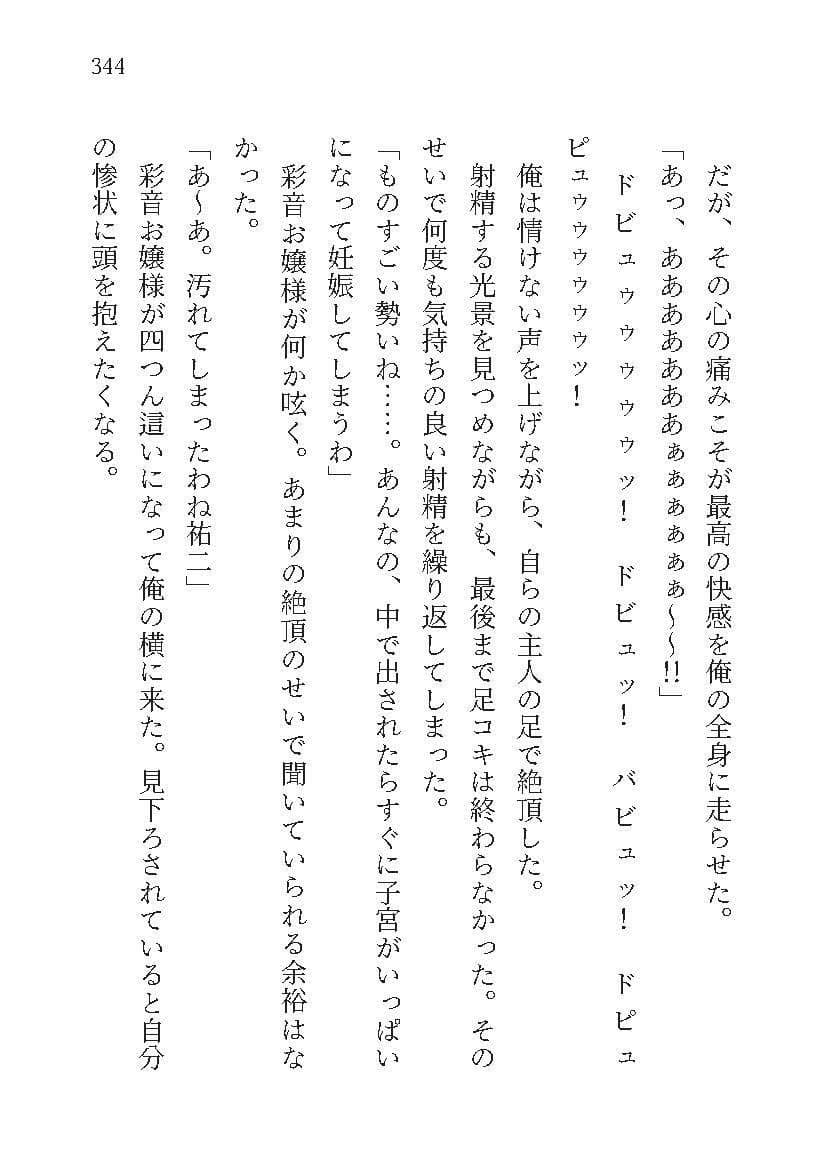 344
だが、その心の痛みこそが最高の快感を俺の全身に走らせた。
「あっ、ああああああぁぁぁぁぁぁ～～!!」
ドビュゥゥゥゥゥッ！　ドビュッ！　バビュッ！　ドピュ
ピュゥゥゥゥゥゥッ！
俺は情けない声を上げながら、自らの主人の足で絶頂した。
射精する光景を見つめながらも、最後まで足コキは終わらなかった。その
せいで何度も気持ちの良い射精を繰り返してしまった。
「ものすごい勢いね……。あんなの、中で出されたらすぐに子宮がいっぱい
になって妊娠してしまうわ」
彩音お嬢様が何か呟く。あまりの絶頂のせいで聞いていられる余裕はな
かった。
「あ～あ。汚れてしまったわね祐二」
彩音お嬢様が四つん這いになって俺の横に来た。見下ろされていると自分
の惨状に頭を抱えたくなる。